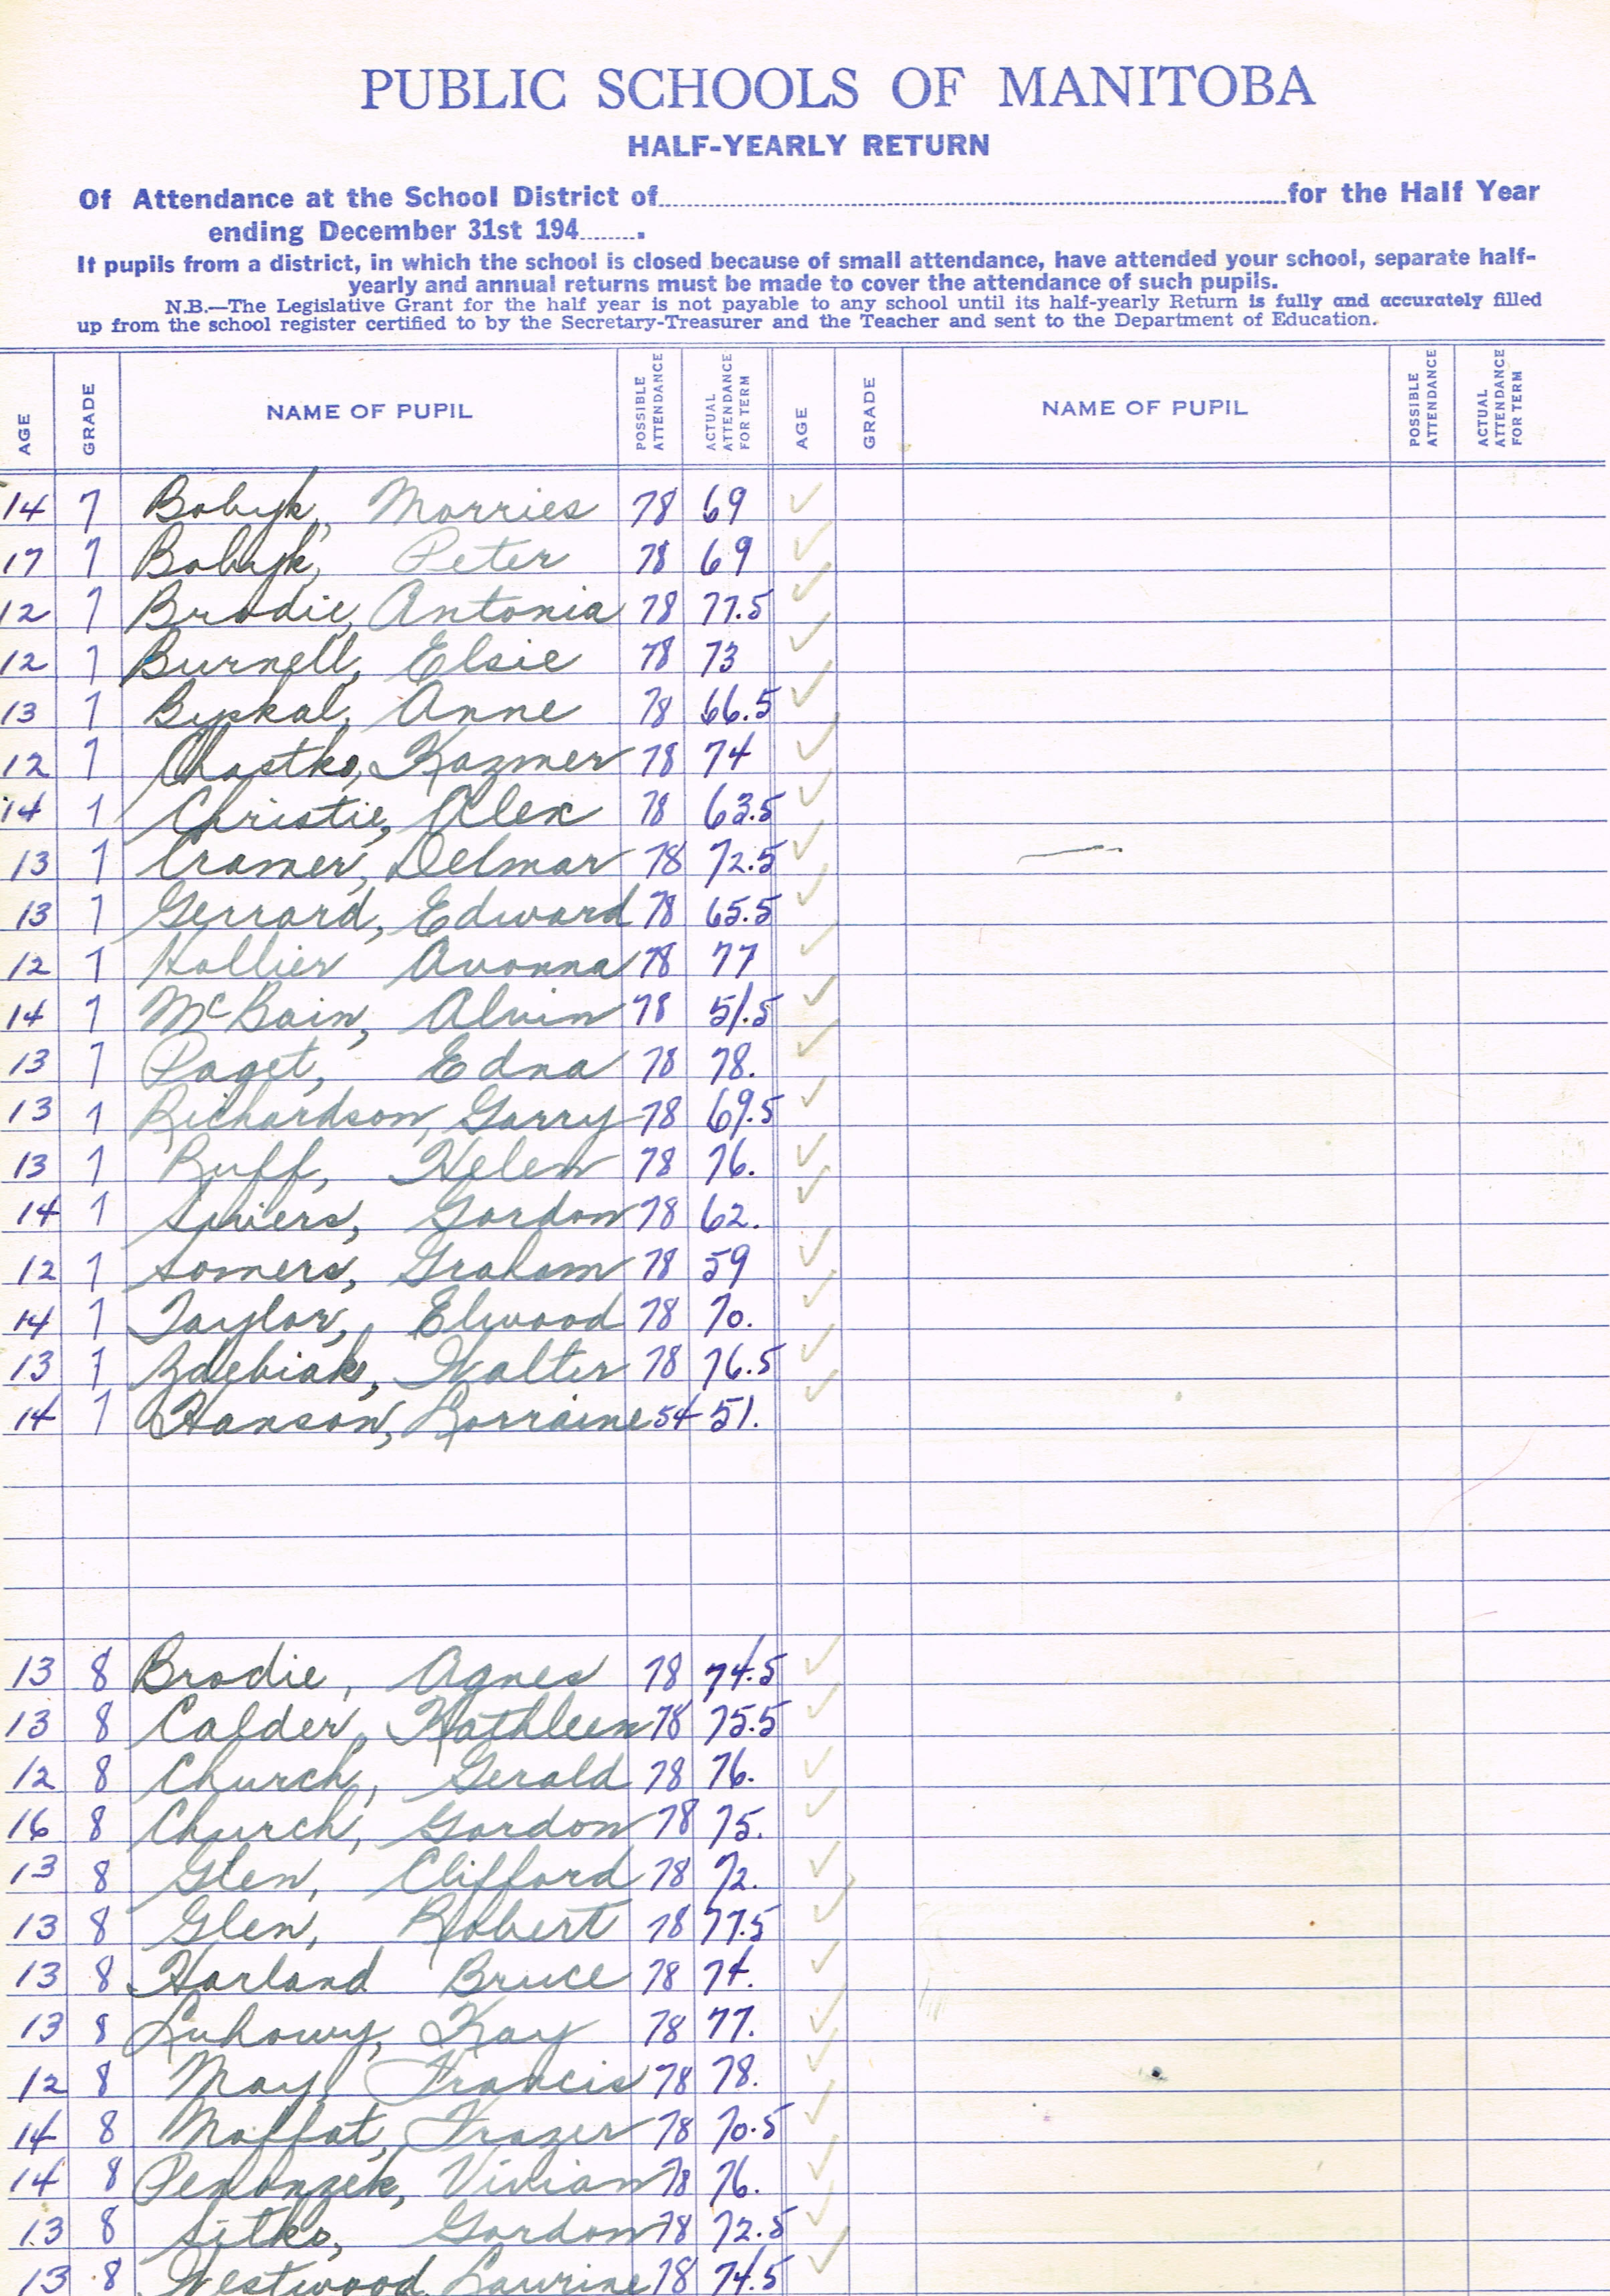 PUBLIC SCHOOLS OF MANITOBA
HALF-YEARLY RETURN
Of Attendance at the School District of for the Half Year
ending December 31st 194 .
If pupils from a district, in which the school is closed because of small attendance, have attended your school, separate half-
yearly and annual returns must be made to cover the attendance of such pupils.
N.B.—The Legislative Grant for the half year is not payable to any school until its half-yearly Return is fully and accurately filled
up from the school register certified to by the Secretary-Treasurer and the Teacher and sent to the Department of Education.
AGE GRADE NAME OF PUPIL POSSIBLE ATTENDANCE ACTUAL ATTENDANCE FOR TERM AGE GRADE NAME OF PUPIL POSSIBLE ATTENDANCE ACTUAL ATTENDANCE FOR TERM
14 7 Bobyk, Morries 78 69 ✓
17 7 Bobyk, Peter 78 69 ✓
12 7 Brodie, Antonia 78 77.5 ✓
12 7 Burnell, Elsie 78 73 ✓
13 7 Byskal, Anne 78 66.5 ✓
12 7 Chastko, Kazmer 78 74 ✓
14 7 Christie, Alex 78 63.5 ✓
13 7 Cramer, Delmar 78 72.5 ✓
13 7 Gerrard, Edward 78 65.5 ✓
12 7 Hollier Avonna 78 77 ✓
14 7 McBain, Alvin 78 51.5 ✓
13 7 Paget, Edna 78 78. ✓
13 7 Richardson, Garry 78 69.5 ✓
13 7 Ruff, Helen 78 76. ✓
14 7 Spiers, Gordon 78 62. ✓
12 7 Somers, Graham 78 59 ✓
14 7 Taylor, Elwood 78 70. ✓
13 7 Zdebiak, Walter 78 76.5 ✓
14 7 Hanson, Lorraine 54 51. ✓
13 8 Brodie, Agnes 78 74.5 ✓
13 8 Calder, Kathleen 78 75.5 ✓
12 8 Church, Gerald 78 76. ✓
16 8 Church, Gordon 78 75. ✓
13 8 Glen, Clifford 78 72. ✓
13 8 Glen, Robert 78 77.5 ✓
13 8 Harland Bruce 78 74. ✓
13 8 Luhowy, Kay 78 77. ✓
12 8 May, Francis 78 78. ✓
14 8 Moffat, Frazer 78 70.5 ✓
14 8 Vivian 78 76. ✓
13 8 Sitko, Gordon 78 72.5 ✓
13 8 Westwood, Laurine 78 74.5 ✓